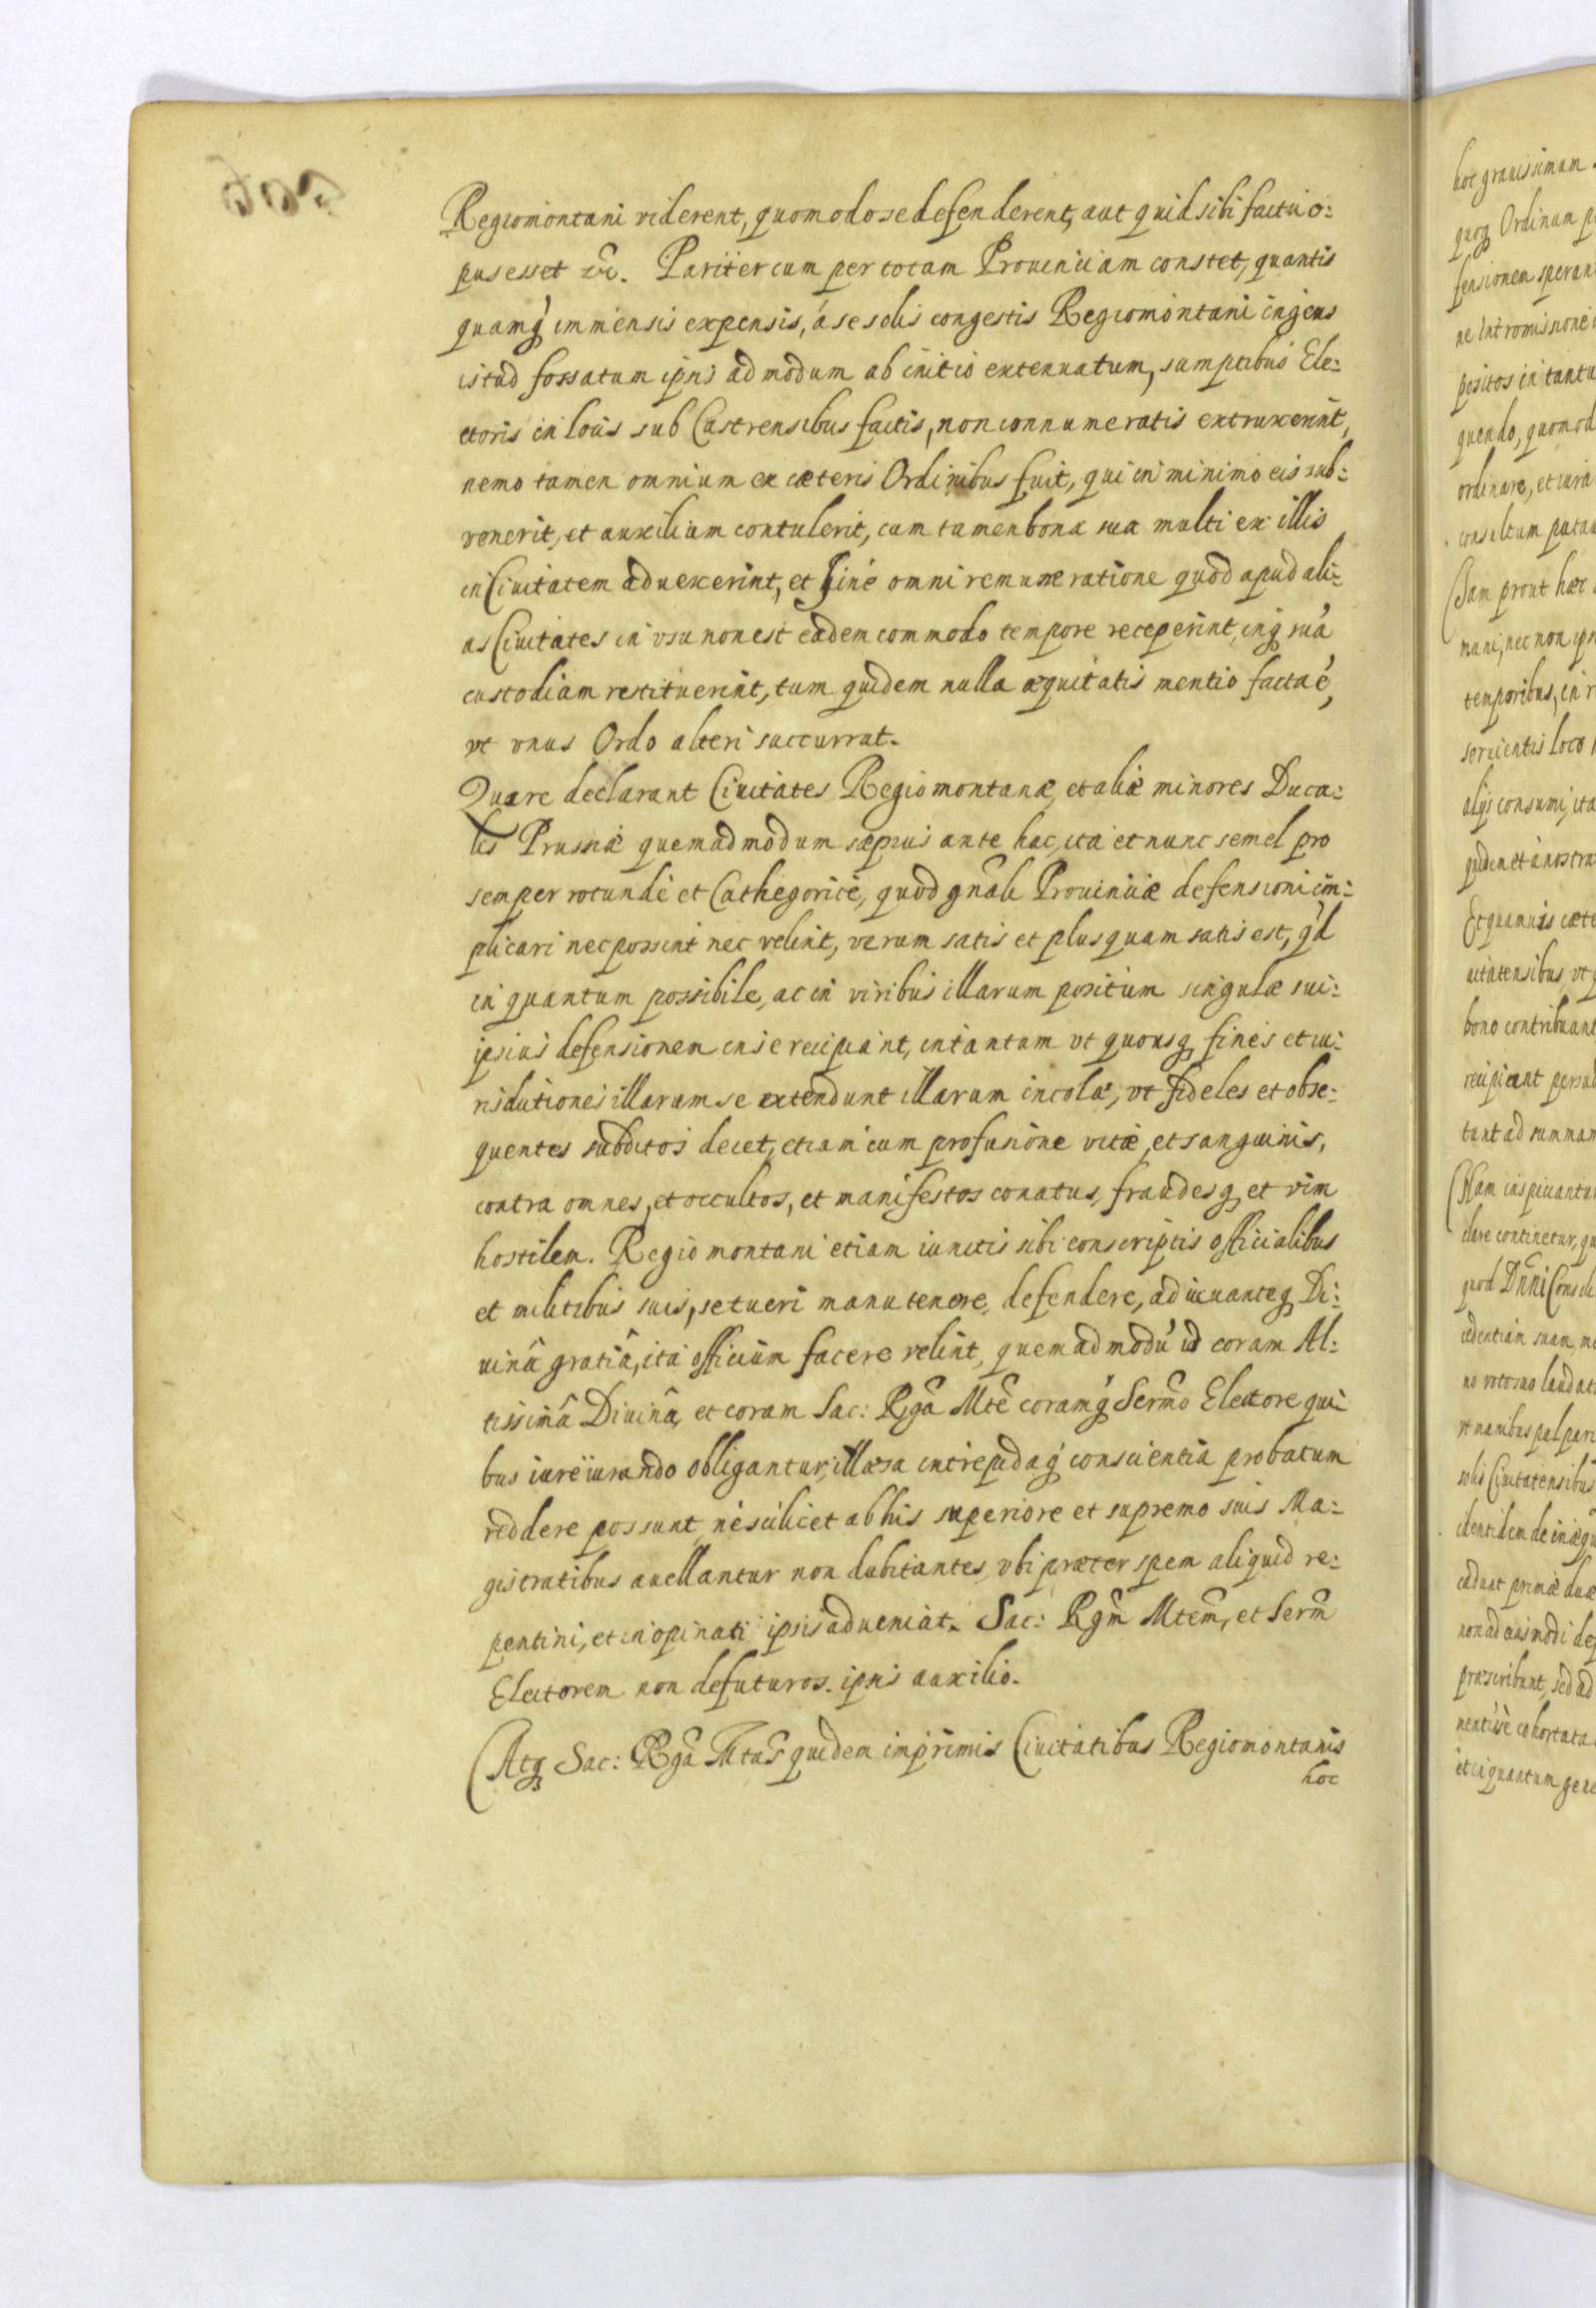 Regiomontani viderent, quomodo se defenderent, aut quid sibi factu o:
pus esset &c. Pariter cum per totam Prouinciam constet, quantis
quamq́ immensis expensis, á se solis congestis Regiomontani ingens
istud fossatum ipsis admodum ab initio extenuatum, sumptibus Ele:
ctoris in locis sub Castrensibus factis, non connumeratis extruxerint,
nemo tamen omnium ex cæteris Ordinibus fuit, qui in minimo eis sub:
venerit, et auxilium contulerit, cum tamen bona sua multi ex illis
in Ciuitatem aduexerint, et sine omni remuneratione quod apud ali:
as Ciuitates in vsu non est eadem commodo tempore receperint, inq́ suá
custodiam restituerint, tum quidem nulla æquitatis mentio facta é,
vt vnus Ordo alteri succurrat.
Quare declarant Ciuitates Regiomontanæ, et aliæ minores Duca:
lis Prussiæ quemadmodum sæpius ante hac, ita et nunc semel pro
semper rotundè et Cathegoricè, quod gn̄ali Prouinciæ defensioni im:
plicari nec possint nec velint, verum satis et plusquam satis est, q́d
in quantum possibile, ac in viribus illarum positum singulæ sui:
ipsius defensionem in se recipiant, in tantum vt quousq fines et iu:
risdictiones illarum se extendunt illarum incolæ, vt fideles et obse:
quentes subditos decet, etiam cum profusione vitæ, et sanguinis,
contra omnes, et occultos, et manifestos conatus, fraudesq et vim
hostilem. Regiomontani etiam iunctis sibi conscriptis officialibus
et militibus suis, se tueri manutenere, defendere, adiuuanteq Di:
uinâ gratiâ, ita officium facere velint, quemadmodú id coram Al:
tissimâ Diuinâ, et coram Sac: Rg̃a Mtẽ coramq́ Serm̃o Electore qui
bus iureiurando obligantur, illæsa intrepidaq́ conscientia probatum
reddere possunt, ne scilicet ab his superiore et supremo suis Ma:
gistratibus auellantur non dubitantes, vbi præter spem aliquid re:
pentini, et inopinati ipsis adueniat. Sac: Rg̃m Mtem̃, et Serm̃
Electorem non defuturos ipsis auxilio.
Atq Sac: Rg̃a Mtas̃ quidem imprimis Ciuitatibus Regiomontanis
hoc
hoc grauissimum
quoq Ordinum
fensionem
ordinare, et
consultum
Nam prout hæc
mani, nec non
temporibus, in
seruientis loco
alijs consumi, ita
quidem et à nostra
Et quamuis
uitatensibus vt
bono contribuant
recipiant
tant ad summam
clare continetur,
quod Dn̄ni
vt manibus palpari
solis Ciuitatensibus
identidem de
cedunt primæ duæ
non ad eiusmodi
præscribunt, sed ad
et in quantum